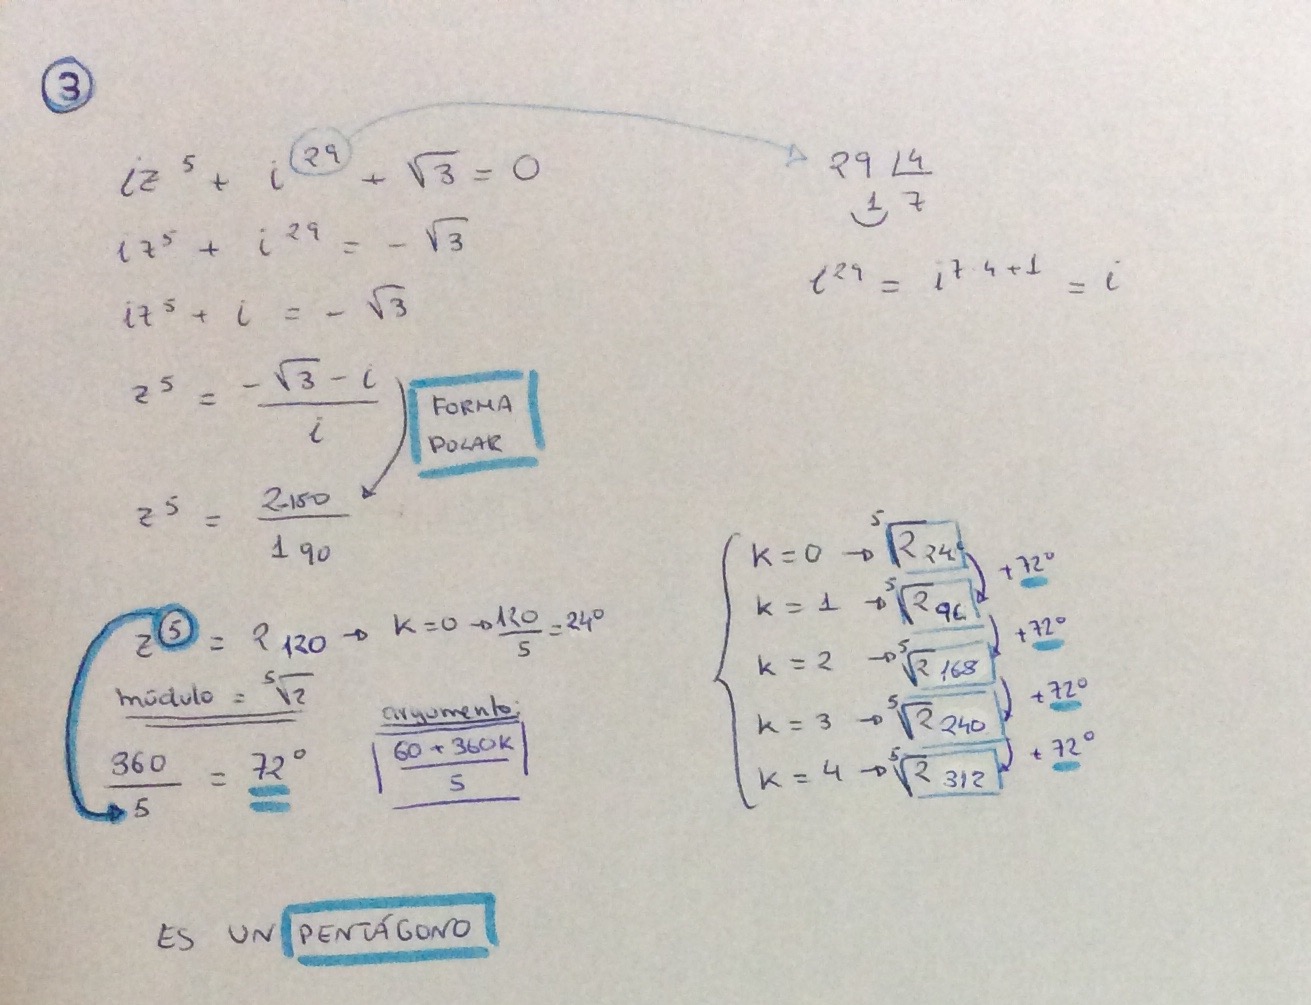 3
iz⁵ + i²⁹ + √3 = 0
29 ⌊4
1 7
iz⁵ + i²⁹ = - √3
i²⁹ = i⁷·⁴⁺¹ = i
iz⁵ + i = - √3
z⁵ = (-√3 - i)/i
FORMA
POLAR
z⁵ = 2₁₅₀/1₉₀
z⁵ = 2₁₂₀ → K=0 → 120/5 = 24º
módulo = ⁵√2
360/5 = 72º
argumento:
(60 + 360K)/5
K=0 → ⁵√2 ₂₄º
K=1 → ⁵√2 ₉₆
K=2 → ⁵√2 ₁₆₈
K=3 → ⁵√2 ₂₄₀
K=4 → ⁵√2 ₃₁₂
+72º
+72º
+72º
+72º
ES UN PENTÁGONO